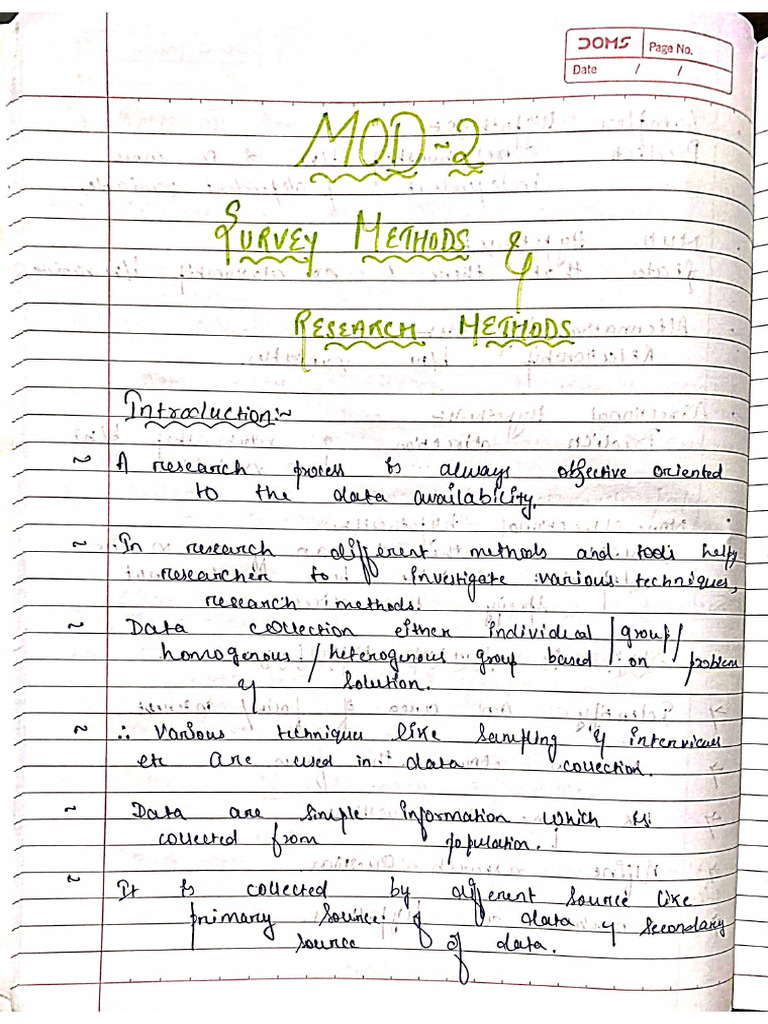 DOMS
Page No.
Date / /
MOD-2
SURVEY METHODS &
RESEARCH METHODS
Introduction:~
~ A research process is always objective oriented
to the data availability.
~ In research different methods and tools help
researcher to investigate various techniques,
research methods.
~ Data collection either individual / group /
homogenous / heterogenous group based on problem
& solution.
~ ∴ various techniques like sampling & interviews
etc are used in data collection.
~ Data are simple information which is
collected from population.
~ It is collected by different source like
primary source of data & secondary
source of data.